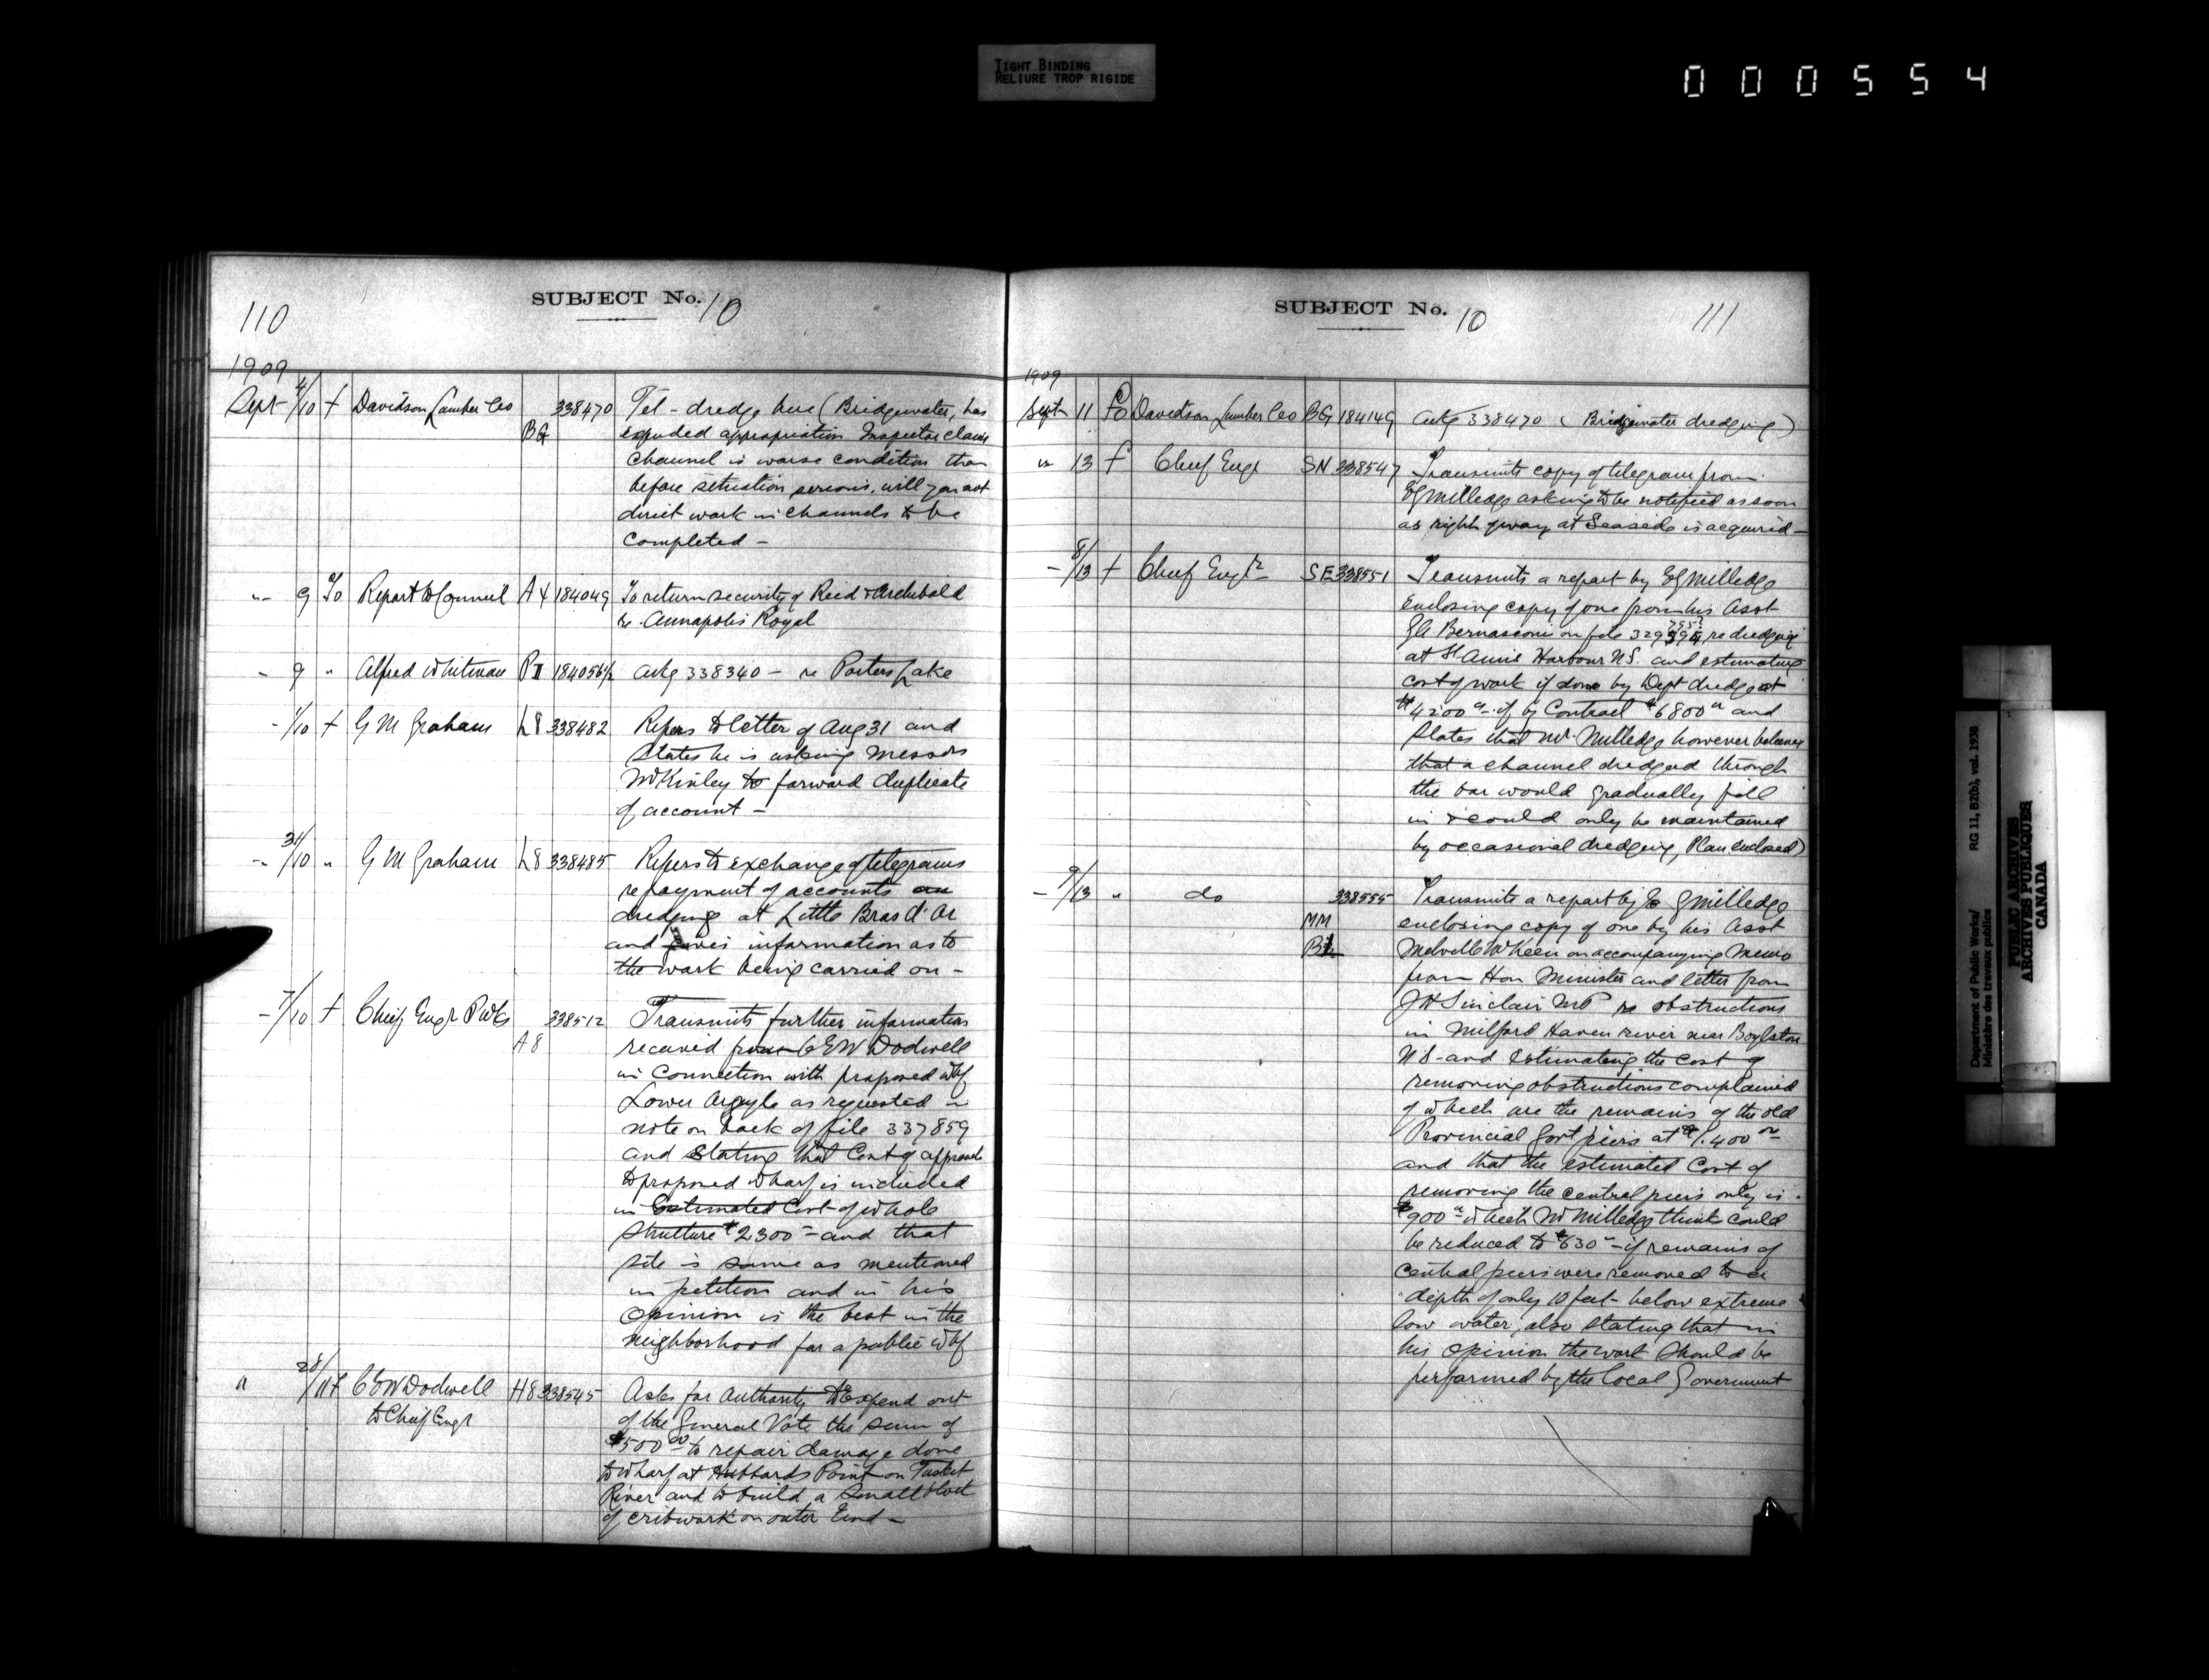 TIGHT BINDING
RELIURE TROP RIGIDE
000554
110
SUBJECT No. 10
1909
Sept 4/10 f Davidson Lumber Co BG 338470 Tel - dredge here (Bridgewater, has
expended appropriation Inspector claims
channel is worse condition than
before situation serious. will you not
direct work in channels to be
completed -
" 9 To Report to Council A4 184049 To return security of Reid & Archibald
re Annapolis Royal
- 9 " Alfred Whitman PI 184056½ ackg 338340 - re Porters Lake
- 1/10 f G M Graham L8 338482 Refers to letter of Aug 31 and
states he is asking Messrs
McKinley to forward duplicate
of account -
- 31/10 " G M Graham L8 338485 Refers to exchange of telegrams
re payment of accounts
dredging at Little Bras d'Or
and gives information as to
the work being carried on -
- 7/10 f Chief Engr PWks A8 338512 Transmits further information
received from C E W Dodwell
in connection with proposed whf
Lower Argyle as requested in
note on back of file 337859
and stating that Cost of approach
to proposed wharf is included
in Estimated Cost of whole
structure $2,300 - and that
site is same as mentioned
in petition and in his
opinion is the best in the
neighborhood for a public whf
" 28/11 f C E W Dodwell H8 338545 Asks for authority to Expend out
to Chief Engr of the General Vote the sum of
$500 00 to repair damage done
to wharf at Hubbards Point on Tusket
River and to build a small block
of cribwork on outer End -
SUBJECT No. 10
111
1909
Sept 11 To Davidson Lumber Co BG 184149 ackg 338470 (Bridgewater dredging)
" 13 f Chief Engr SN 338547 Transmits copy of telegram from
E G Milledge asking to be notified as soon
as right of way at Seaside is acquired -
- 8/13 f Chief Engr SE 338551 Transmits a report by E G Milledge
enclosing copy of one from his Asst
Bernasconi on file re dredging
at St Anns Harbour N.S. and estimating
cost of work if done by Dept dredge at
$4200 - if by Contract $6800 and
states that Mr. Milledge however believes
that a channel dredged through
the bar would gradually fill
in & could only be maintained
by occasional dredging, Plan enclosed)
- 9/13 " do 338555 Transmits a report by E G Milledge
MM enclosing copy of one by his Asst
on accompanying memo
from Hon Minister and letter from
J H Sinclair MP re obstructions
in Milford Haven river near Boylston
N S - and estimating the cost of
removing obstructions complained
of which are the remains of the old
Provincial Govt piers at $1.400
and that the estimated Cost of
removing the central piers only is
$900 - which Mr Milledge thinks could
be reduced to $630 - if remains of
central piers were removed to a
depth of only 10 feet below extreme
low water, also stating that in
his opinion the work should be
performed by the Local Government
Department of Public Works/
Ministère des travaux publics
RG 11, B2(b), vol. 1938
PUBLIC ARCHIVES
ARCHIVES PUBLIQUES
CANADA